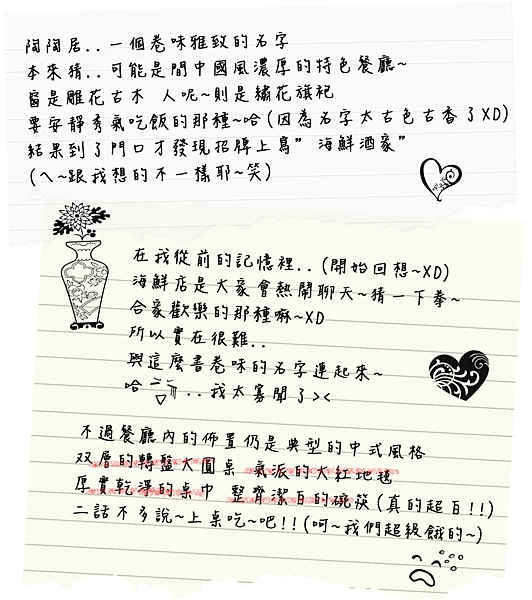 陶陶居..一個卷味雅致的名字
本來猜..可能是間中國風濃厚的特色餐廳~
窗是雕花古木 人呢~則是繡花旗袍
要安靜秀氣吃飯的那種~哈(因為名字太古色古香了XD)
結果到了門口才發現招牌上寫"海鮮酒家"
(ㄟ~跟我想的不一樣耶~笑)
在我從前的記憶裡..(開始回想~XD)
海鮮店是大家會熱鬧聊天~猜一下拳~
合家歡樂的那種嘛~XD
所以實在很難..
與這麼書卷味的名字連起來~
哈 ..我太寡聞了><
不過餐廳內的佈置仍是典型的中式風格
双層的轉盤大圓桌 氣派的大紅地毯
厚實乾淨的桌巾 整齊潔白的碗筷(真的超白!!)
二話不多說~上桌吃~吧!!(呵~我們超級餓的~)